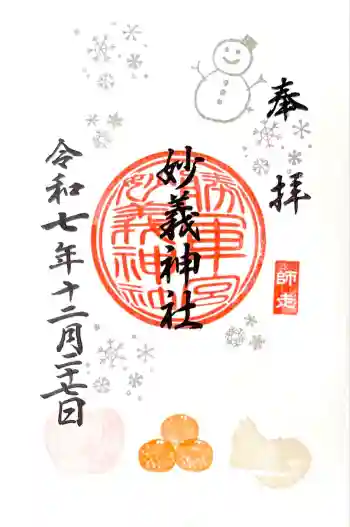 奉拝
師走
妙義神社
令和七年十二月二十七日